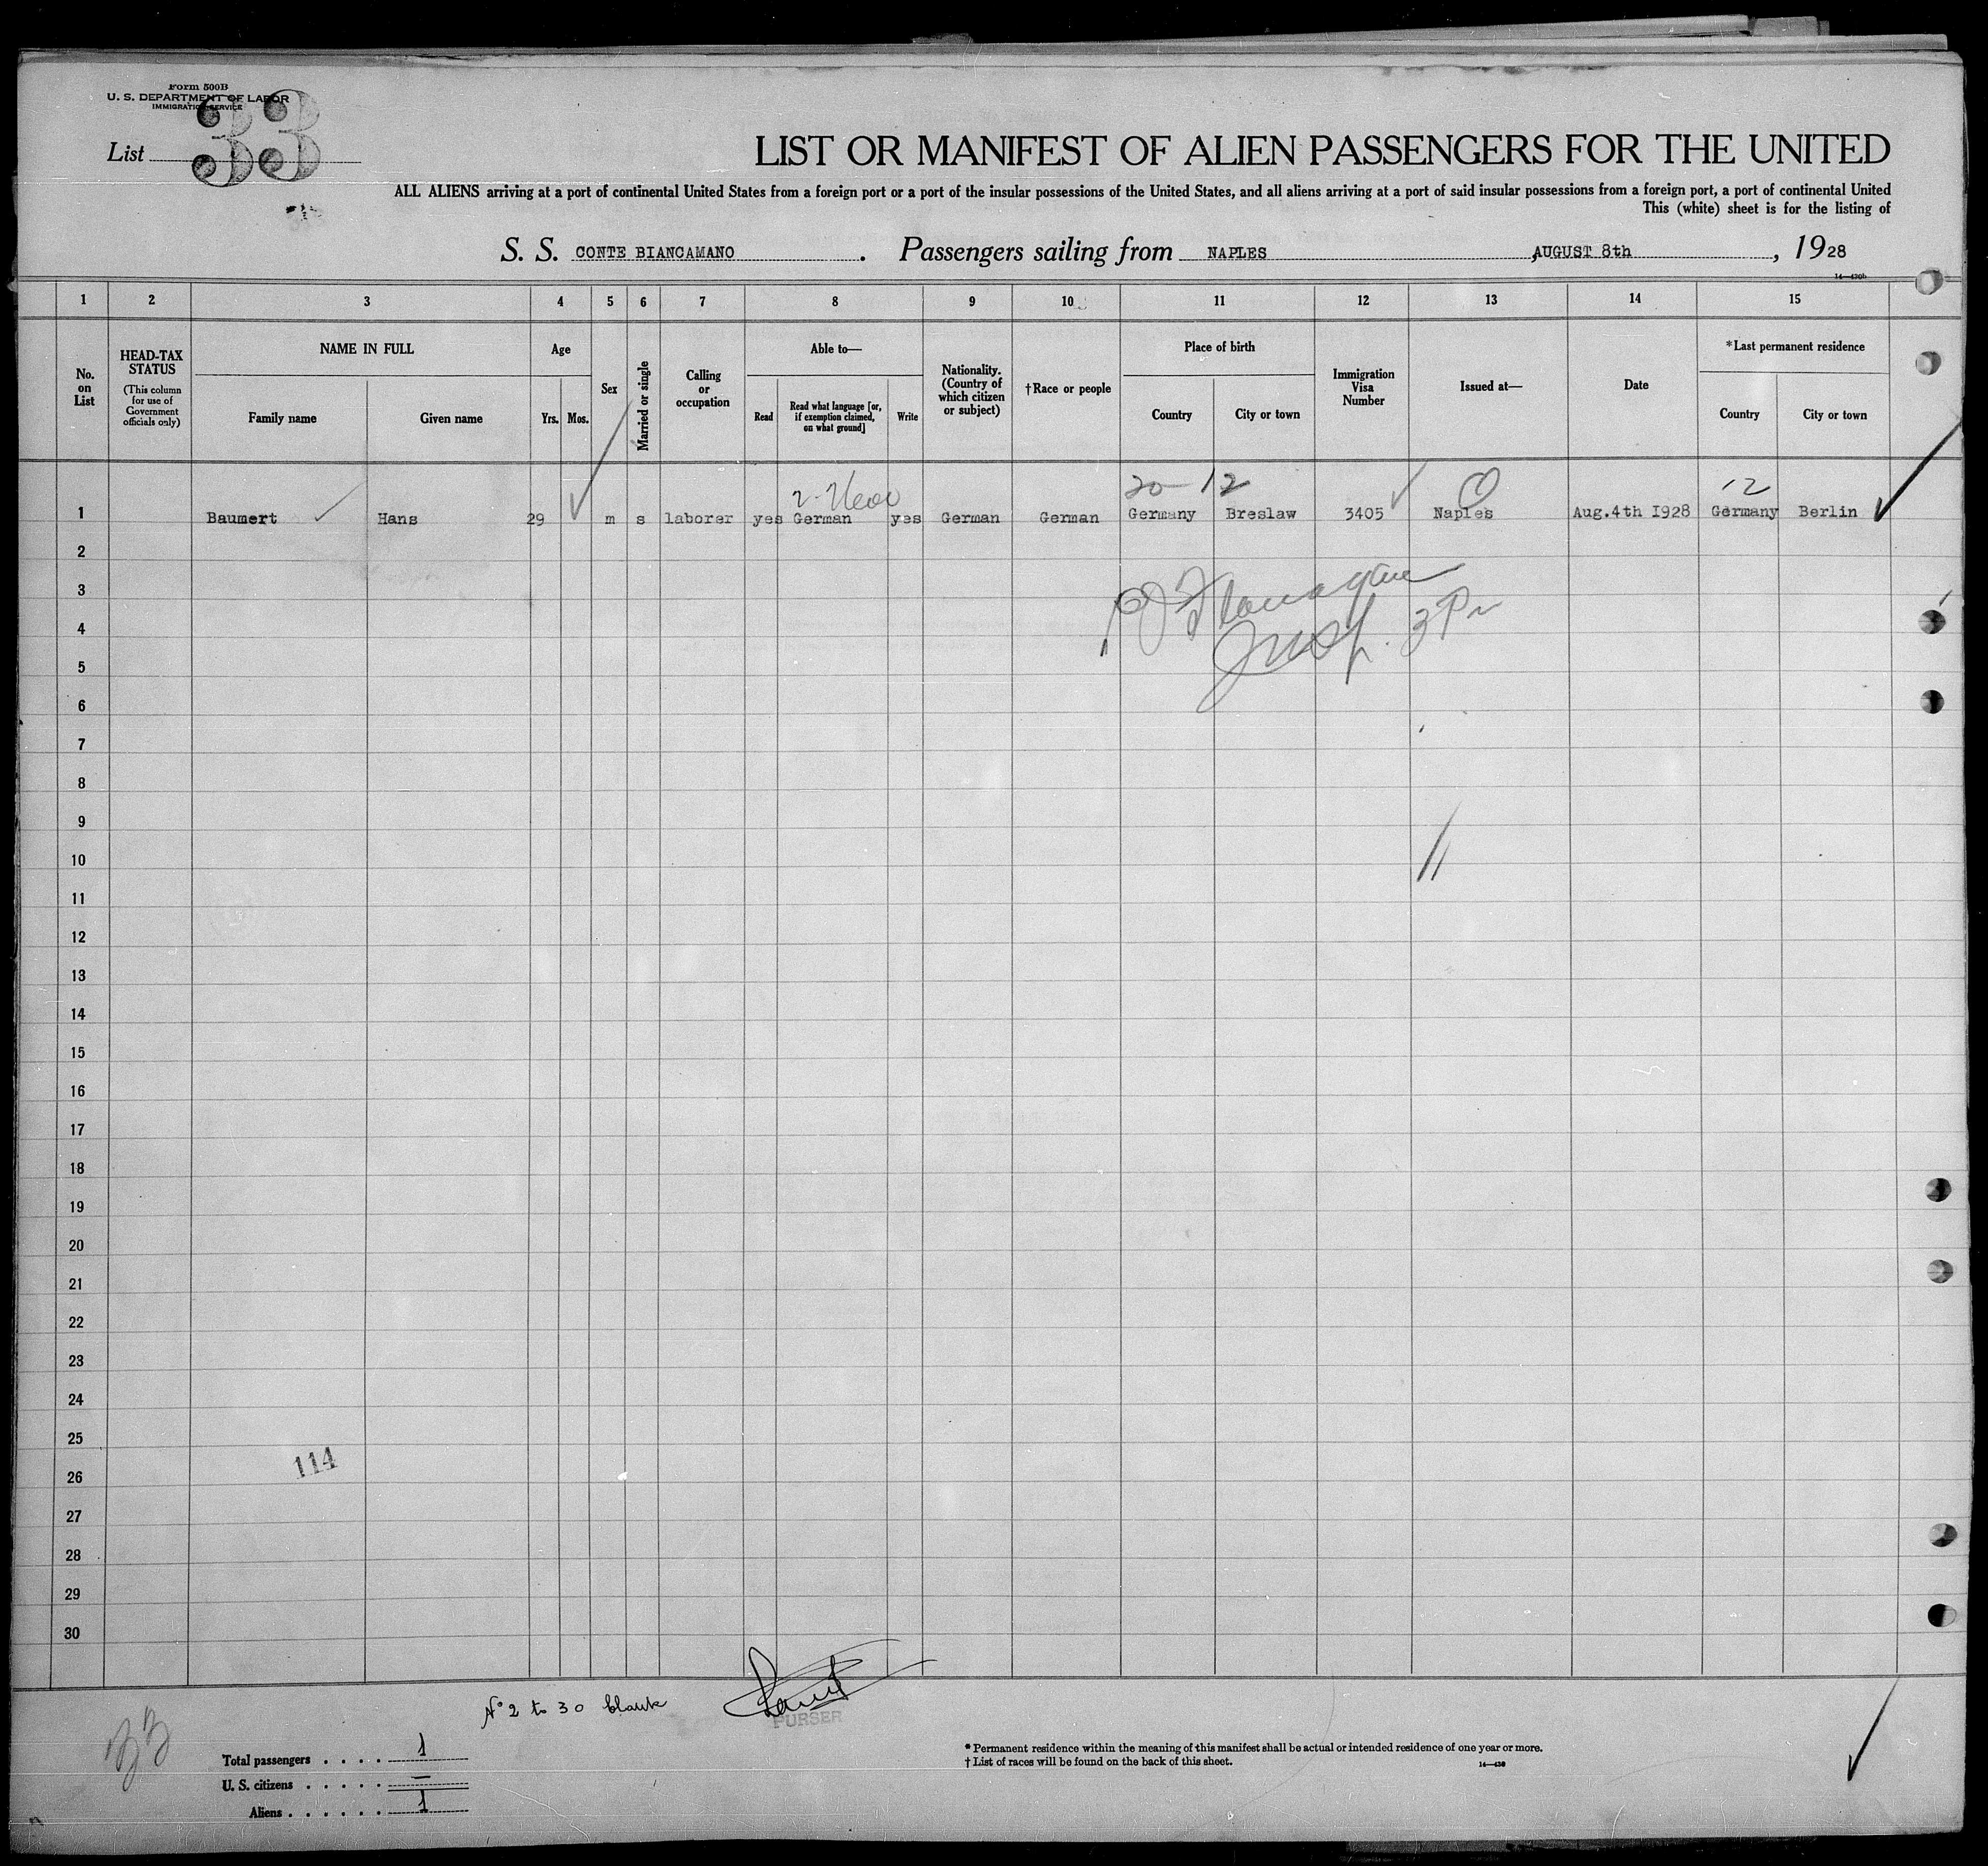 Form 500B
U. S. DEPARTMENT OF LABOR
IMMIGRATION SERVICE
List 33
LIST OR MANIFEST OF ALIEN PASSENGERS FOR THE UNITED
ALL ALIENS arriving at a port of continental United States from a foreign port or a port of the insular possessions of the United States, and all aliens arriving at a port of said insular possessions from a foreign port, a port of continental United
This (white) sheet is for the listing of
S. S. CONTE BIANCAMANO . Passengers sailing from NAPLES , AUGUST 8th , 1928
14—430b
1 2 3 4 5 6 7 8 9 10 11 12 13 14 15
No. on List
HEAD-TAX STATUS
(This column for use of Government officials only)
NAME IN FULL
Family name
Given name
Age
Yrs.
Mos.
Sex
Married or single
Calling or occupation
Able to—
Read
Read what language [or, if exemption claimed, on what ground]
Write
Nationality. (Country of which citizen or subject)
†Race or people
Place of birth
Country
City or town
Immigration Visa Number
Issued at—
Date
*Last permanent residence
Country
City or town
20-12 12
1 Baumert Hans 29 m s laborer yes German yes German German Germany Breslaw 3405 Naples Aug.4th 1928 Germany Berlin
2
3
Flanagan
4
Insp.
5
6
7
8
9
10
11
12
13
14
15
16
17
18
19
20
21
22
23
24
25
114
26
27
28
29
30
N° 2 to 30 blank
PURSER
33
Total passengers . . . . 1
U. S. citizens . . . . . —
Aliens . . . . . . 1
* Permanent residence within the meaning of this manifest shall be actual or intended residence of one year or more.
† List of races will be found on the back of this sheet.
14—430